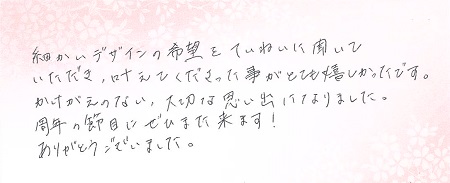 細かいデザインの希望をていねいに聞いて
いただき、叶えてくださった事がとても嬉しかったです。
かけがえのない、大切な思い出になりました。
周年の節目にぜひまた来ます!
ありがとうございました。